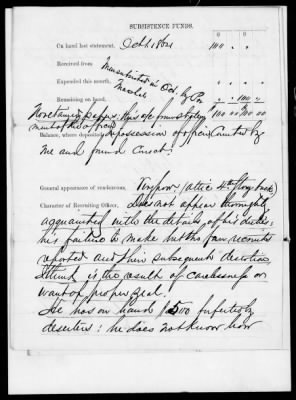 SUBSISTENCE FUNDS.
On hand last statement, Oct 1. 1862 100 " "
Received from
Expended this month,
Remaining on hand, " " 100 "
100 00 100 00
Balance, where deposited, in possession of officer Counted by
me and found Correct.
General appearances of rendezvous, Very poor (attic 4th Story back)
Character of Recruiting Officer, does not appear thoroughly
acquainted with the details of his duties;
his failure to make out the few recruits
reported and their subsequent desertion
I think is the result of carelessness or
want of proper zeal.
He has on hand $500 forfeited by
deserters: he does not know how